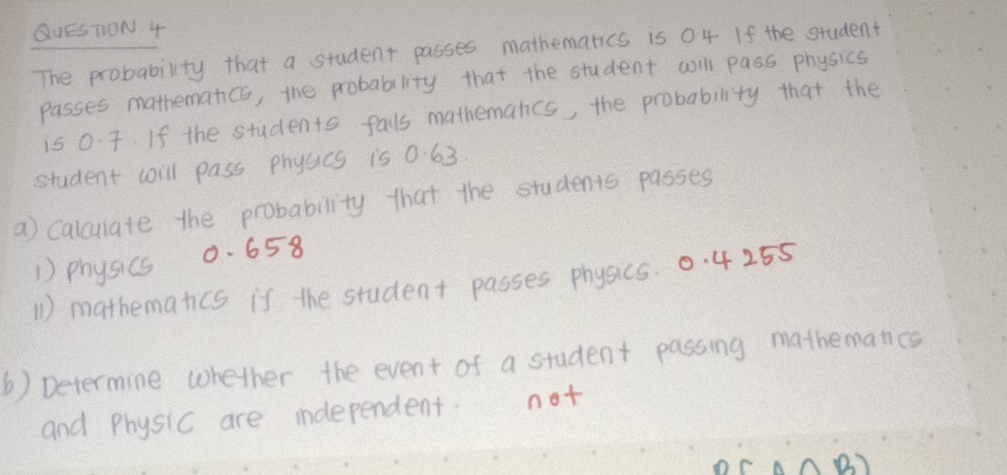 QUESTION 4
The probability that a student passes mathematics is 0 4 If the student
passes mathematics, the probability that the student will pass physics
is 0.7. If the students fails mathematics, the probability that the
student will pass physics is 0.63.
a) Calculate the probability that the students passes
i) physics 0.658
ii) mathematics if the student passes physics. 0.4255
b) Determine whether the event of a student passing mathematics
and Physic are independent. not
P(A∩B)